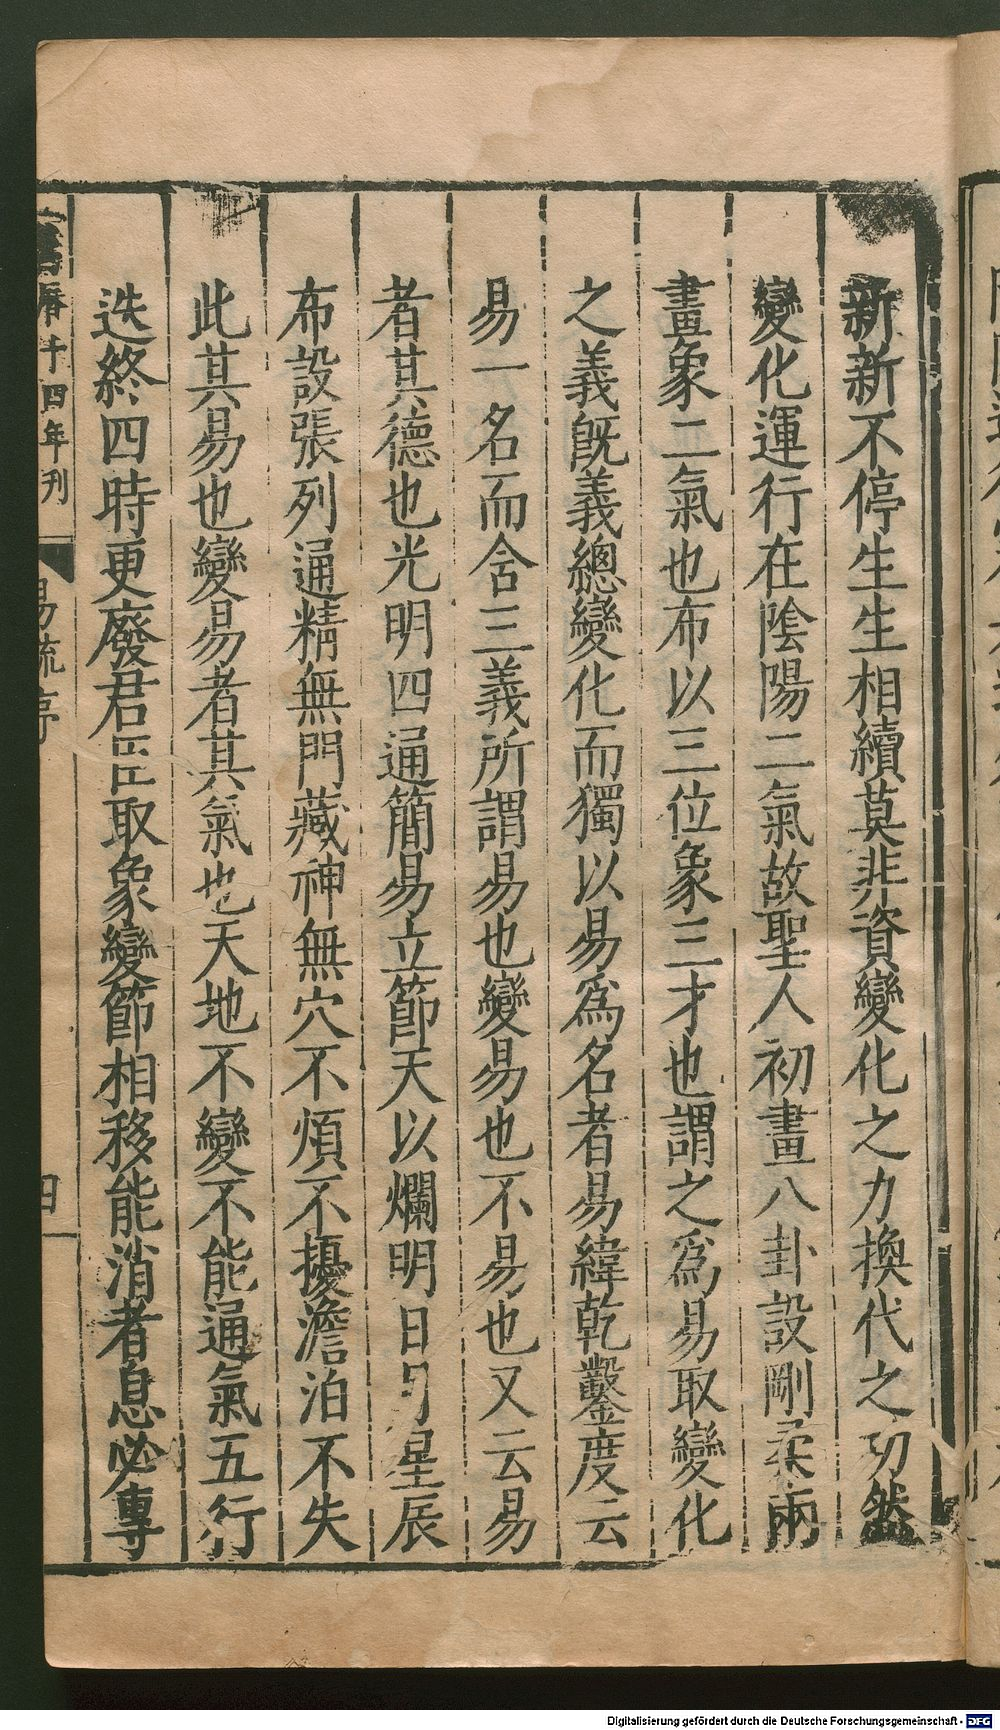 新新不停生生相續莫非資變化之力換代之功然
變化運行在陰陽二氣故聖人初畫八卦設剛柔兩
畫象二氣也布以三位象三才也謂之爲易取變化
之義旣義總變化而獨以易爲名者易緯乾鑿度云
易一名而含三義所謂易也變易也不易也又云易
者其德也光明四通簡易立節天以爛明日月星辰
布設張列通精無門藏神無穴不煩不擾澹泊不失
此其易也變易者其氣也天地不變不能通氣五行
迭終四時更廢君臣取象變節相移能消者息必專
萬曆十四年刊
易疏序
四
Digitalisierung gefördert durch die Deutsche Forschungsgemeinschaft - DFG